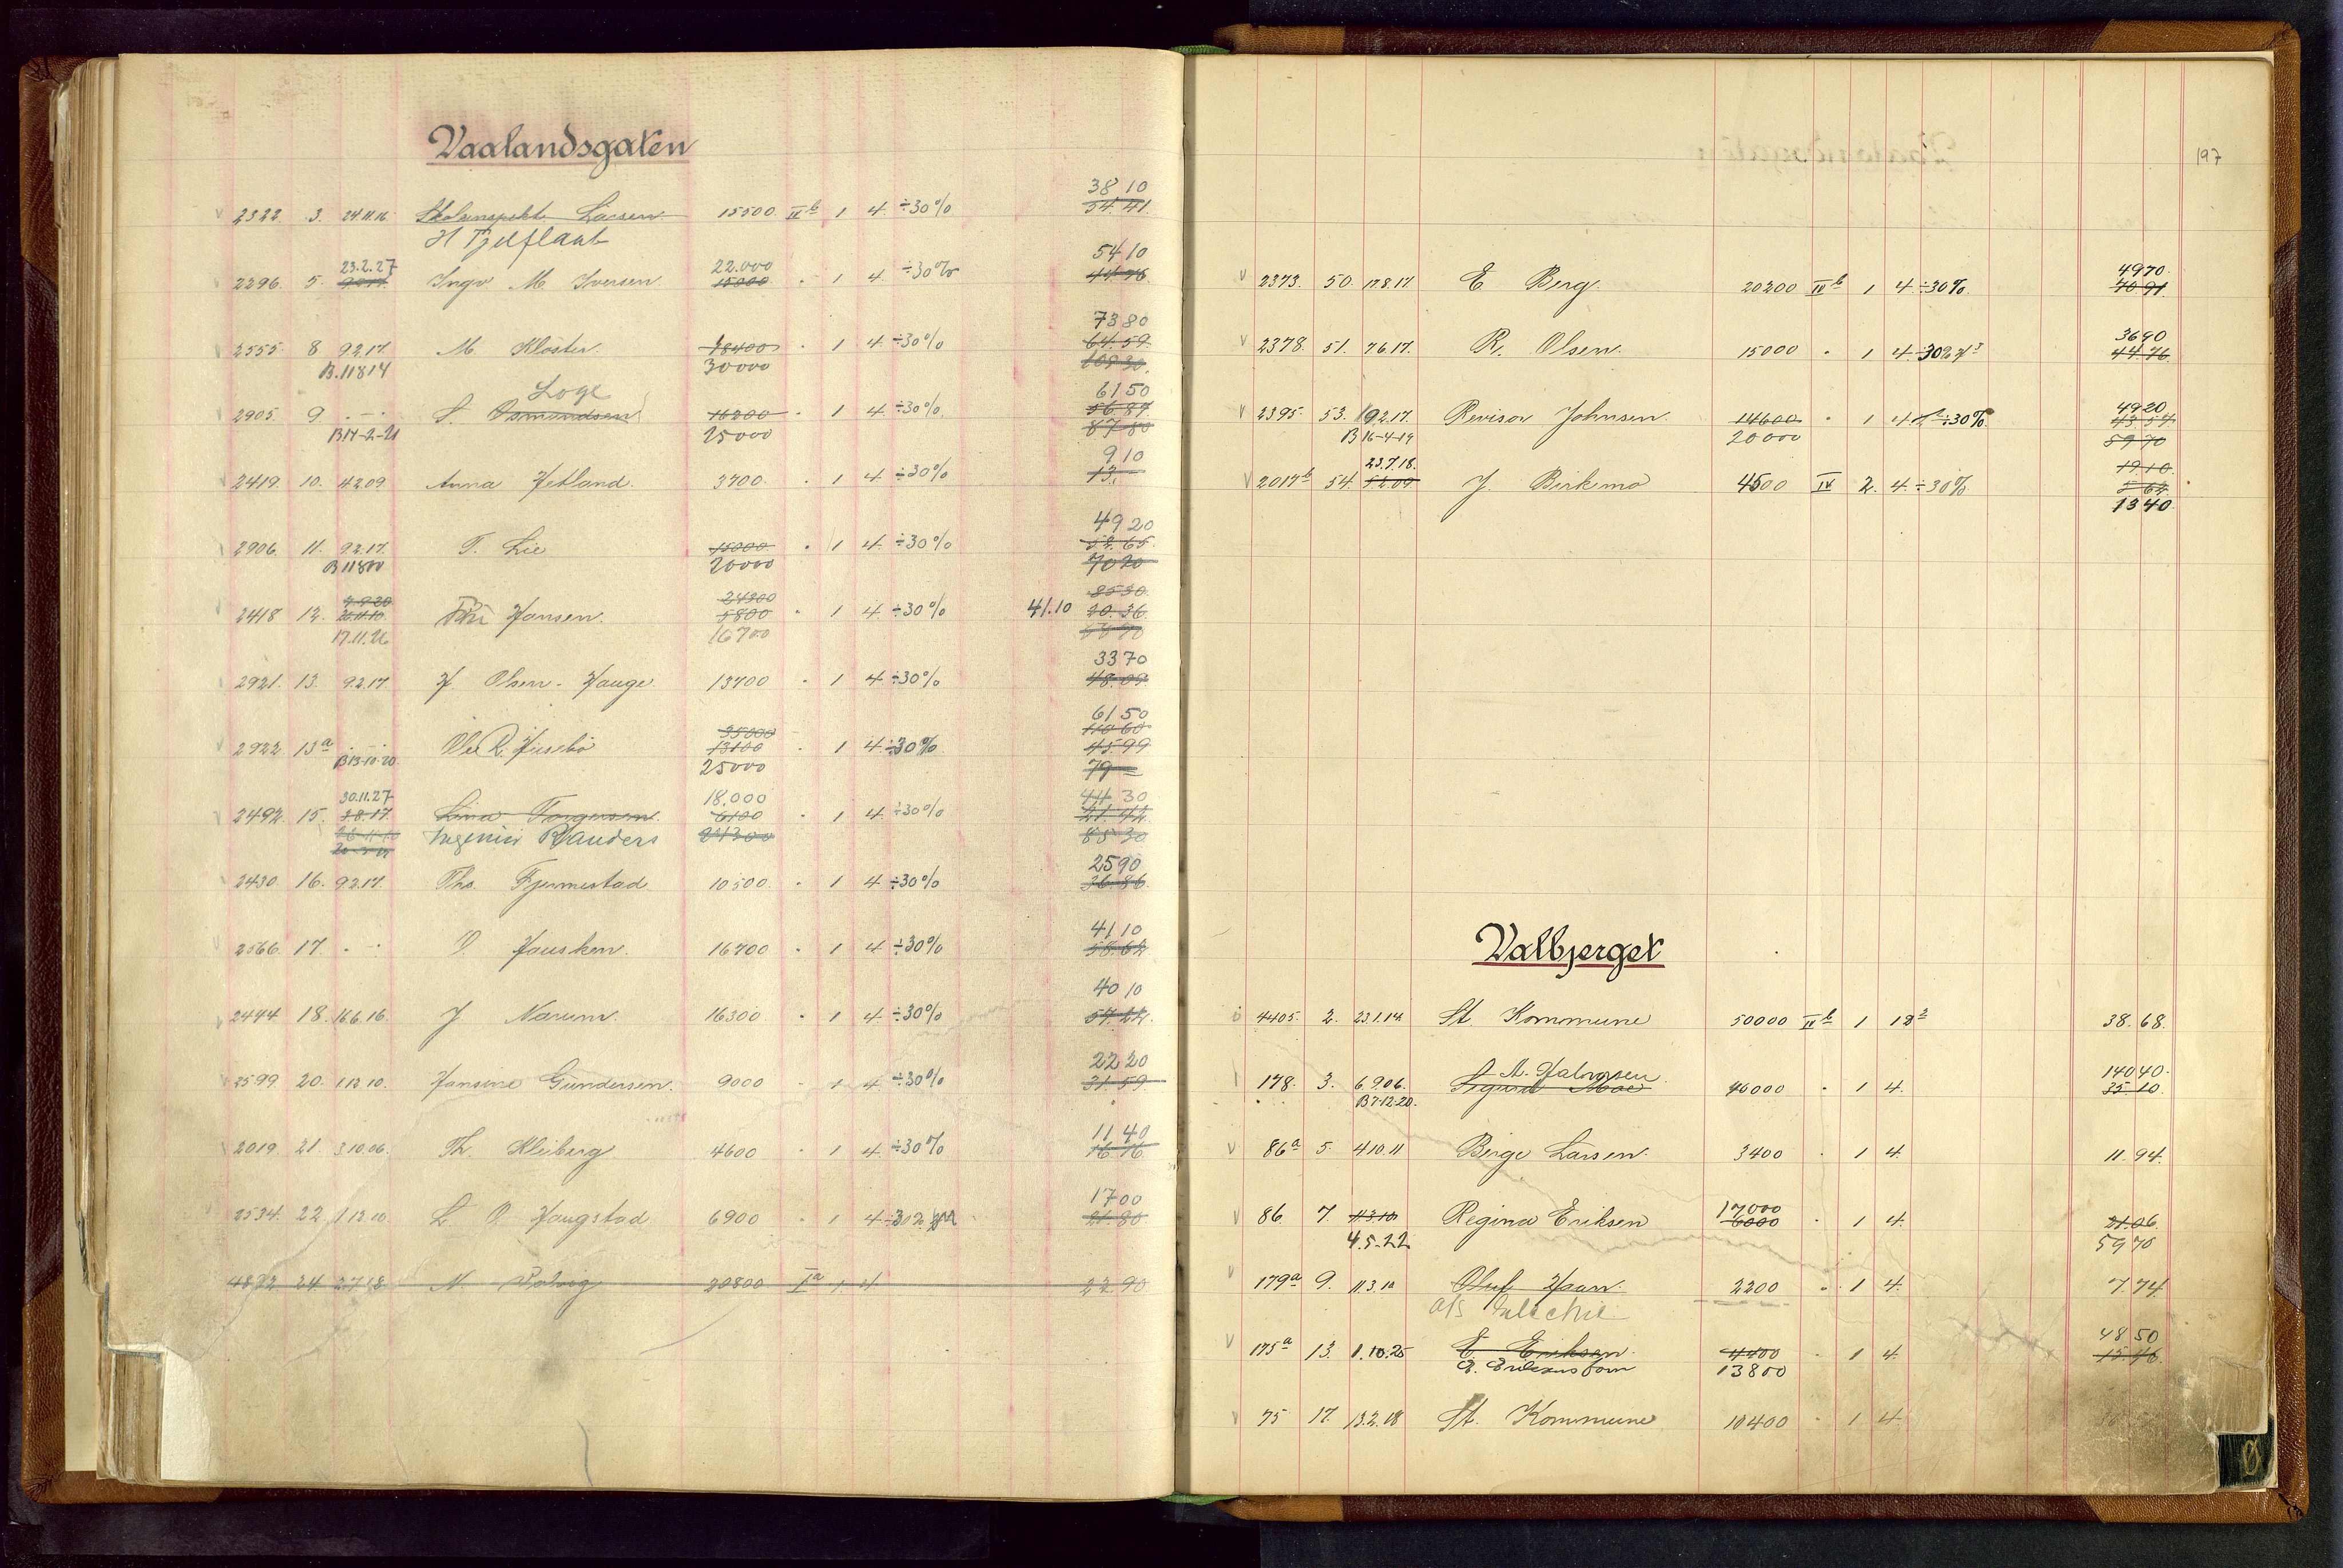 Vaalandsgaten
38 10
2322. 3. 24.11.16 Skoleinspekt. Lassen 15500. IVb 1 4 ÷30% 54.41.
H Tjelflaat
23.2.27 22.000 54 10
2296. 5. Ingv. M. Iversen. 15000 . 1 4. ÷30% 44 76
73 80
2555. 8 9.2.17. M. Kloster. 18400 . 1 4 ÷30% 64.59.
B.11814 30000 108 30.
Loge 61 50
2905. 9 . — . S. Osmundsen 16200 . 1 4. ÷30% 56.87.
B14-2-21 25000 87 80
9 10
2419. 10. 4.2.09 Anna Hetland. 3700. . 1 4 ÷30% 13.—
49 20
2906. 11. 9.2.17. T. Lie 15000 . 1 4. ÷30% 52.65.
B11800 20000 70 20
7.9.20 24300 85 30.
2418 12. 21.11.10. Hansen. 5800 . 1 4 ÷30% 41.10 20.36.
17.11.26 16700
33 70
2921. 13. 9.2.17 H. Olsen-Hauge. 13700 . 1 4 ÷30% 48.09.
35000 61 50
110 60
2922. 13a . — . Ole R. Husebö 13100 . 1 4. ÷30%. 45.99
B13-10-20. 25000 79 —
30.11.27 18.000 44 30
2492. 15. 1.8.17. Lina Torgersen. 6100 . 1 4. ÷30% 21.42
Ingeniör Randers 24300 85 30
25 90
2430. 16. 9.2.17. Ths. Fjermestad 10500. . 1 4 ÷30% 36.86.
41 10
2566. 17. . — . O. Hausken. 16700 . 1 4 ÷30% 58.62
40 10
2444 18. 16.6.16. J. Narum. 16300 . 1 4 ÷30% 57.22.
22 20
2599 20. 1.12.10. Hansine Gundersen. 9000 . 1 4. ÷30% 31.59.
11 40
2019. 21. 3.10.06. Th. Kleiberg 4600 . 1 4. ÷30% 16 16
17 00
2534. 22. 1.12.10 L. O. Haugstad 6900 . 1 4 ÷30% 21.80
4822 24. 2.7.18 N. 20800 Ia 1 4 22.90
197
49 70.
2373. 50. 17.8.17. E Berg. 20200 IVb 1 4 ÷30%. 70 91.
36 90
2378. 51. 7.6.17. R. Olsen. 15000 . 1 4. ÷30% 44 76
49 20
2395. 53. 19.2.17. Revisor Johnsen. 14600 . 1 4. ÷30% 43.57.
B16-4-19 20000 59 70
23.7.18. 19 10.
2017b 54. 5.2.09. J. Birkemo 4500 IV 2. 4. ÷30% 5 64
13 40.
Valbjerget
4405. 2. 23.1.14. St. Kommune 50000 IVb 1 12² 38.68.
A. Halvorsen. 140 40.
178. 3. 6.9.06. Sigurd Moe 40000 . 1 4. 35.10.
B7-12-20.
86a 5. 4.10.11 Berge Larsen. 3400 . 1 4. 11.94.
17000
86. 7. 11.3.10 Regina Eriksen 6000 . 1 4. 21.06.
4.5-22 59 70
179a 9. 11.3.10 Oluf Haan. 2200 . 1 4. 7.74
48 50
175a 13. 1.10.25 E. Eriksen. 4400 . 1 4. 15.46
13800
75 17. 13.2.18 St. Kommune 10400 . 1 4.
Ø